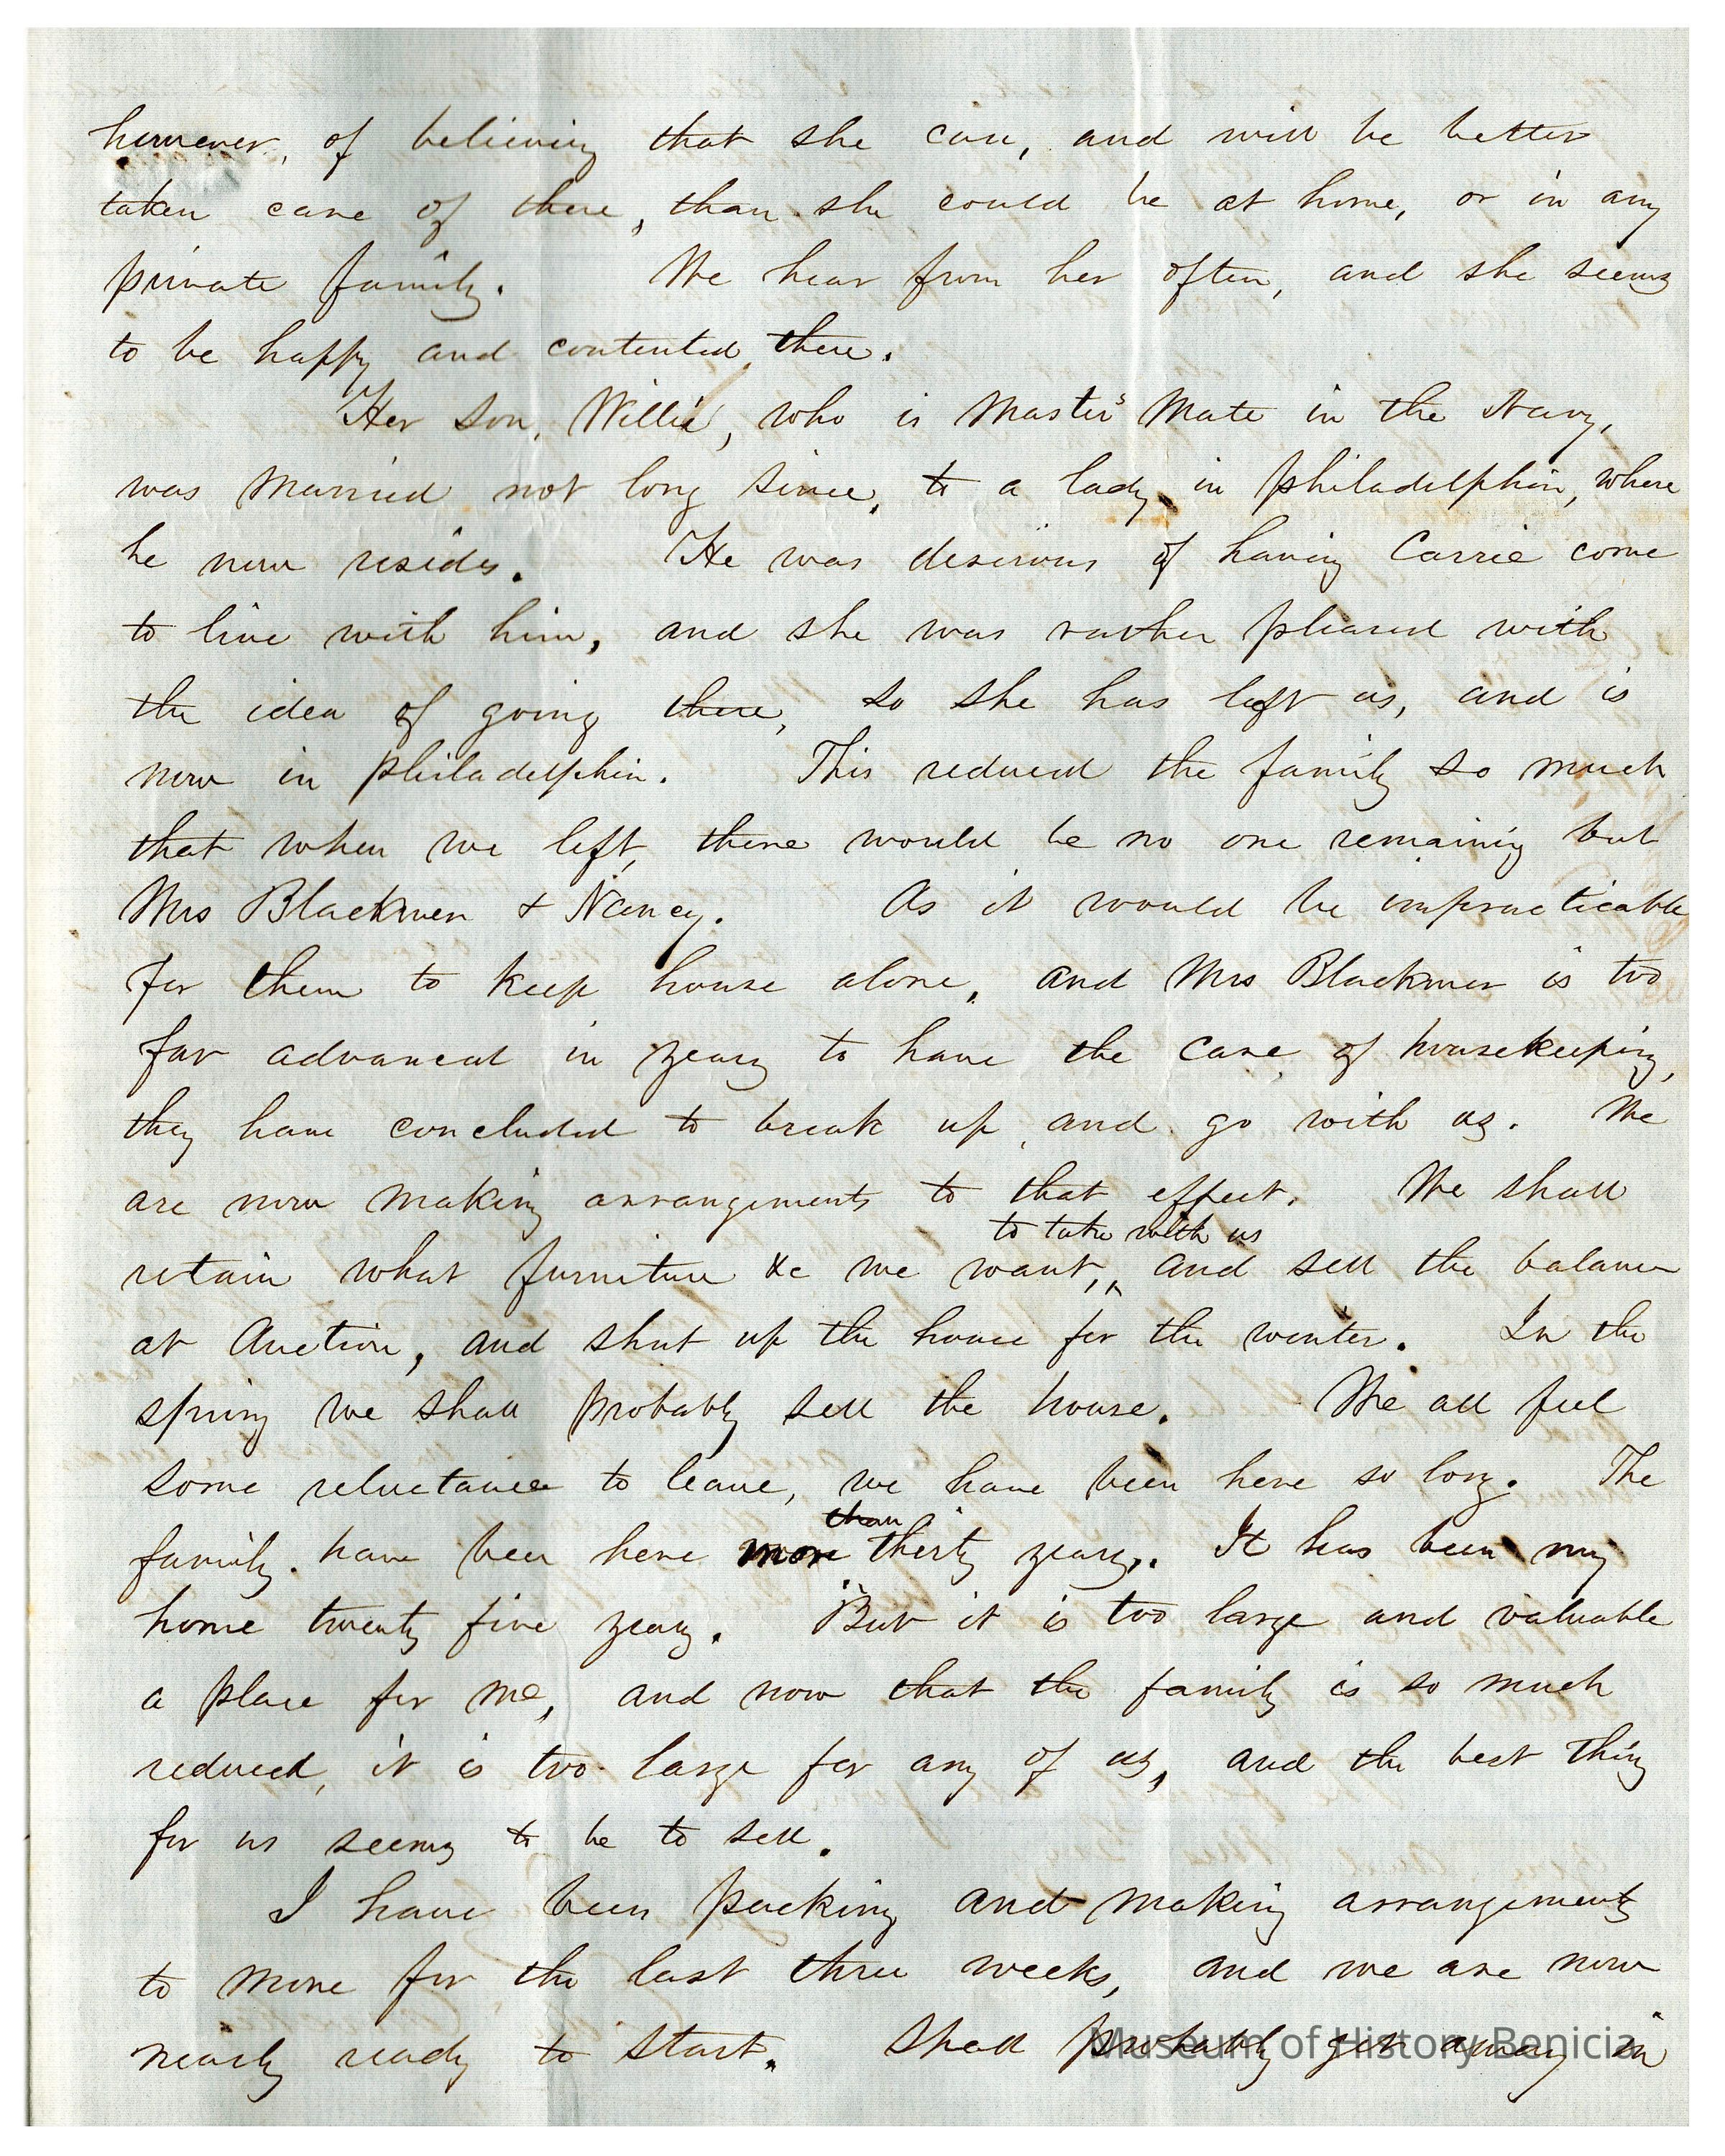 however, of believing that she can, and will be better
taken care of there, than she could be at home, or in any
private family. We hear from her often, and she seems
to be happy and contented there.
Her son, Willie, who is Master's Mate in the Navy,
was married not long since, to a lady in Philadelphia, where
he now resides. He was desirous of having Carrie come
to live with him, and she was rather pleased with
the idea of going there, so she has left us, and is
now in Philadelphia. This reduced the family so much
that when we left, there would be no one remaining but
Mrs Blackmer & Nancy. As it would be impracticable
for them to keep house alone, and Mrs Blackmer is too
far advanced in years to have the care of housekeeping,
they have concluded to break up, and go with us. We
are now making arrangements to that effect. We shall
to take with us
retain what furniture &c we want, and sell the balance
at Auction, and shut up the house for the winter. In the
spring we shall probably sell the house. We all feel
some reluctance to leave, we have been here so long. The
than
family have been here more thirty years. It has been my
home twenty five years. But it is too large and valuable
a place for me, and now that the family is so much
reduced, it is too large for any of us, and the best thing
for us seems to be to sell.
I have been packing and making arrangements
to move for the last three weeks, and we are now
nearly ready to start. Shall probably get away in
Museum of History Benicia